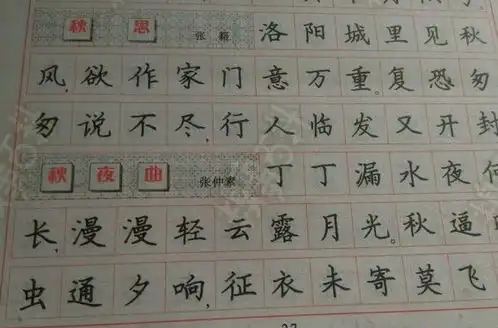 秋思 张籍 洛阳城里见秋
风,欲作家门意万重。复恐匆
匆说不尽,行人临发又开封
秋夜曲 张仲素 丁丁漏水夜何
长,漫漫轻云露月光。秋逼
虫通夕响,征衣未寄莫飞